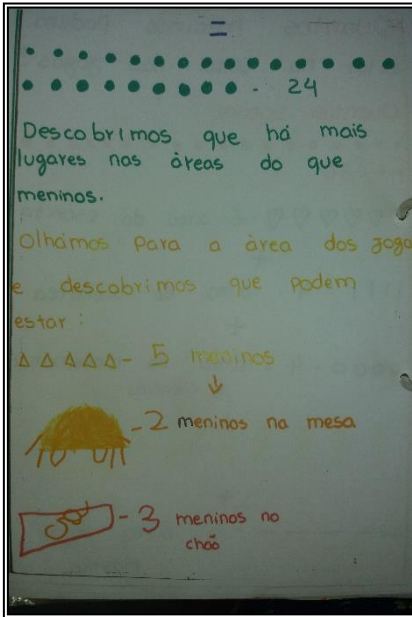 =
- 24
Descobrimos que há mais
lugares nas áreas do que
meninos.
Olhámos para a área dos joga
e descobrimos que podem
estar:
- 5 meninos
- 2 meninos na mesa
- 3 meninos no
chão